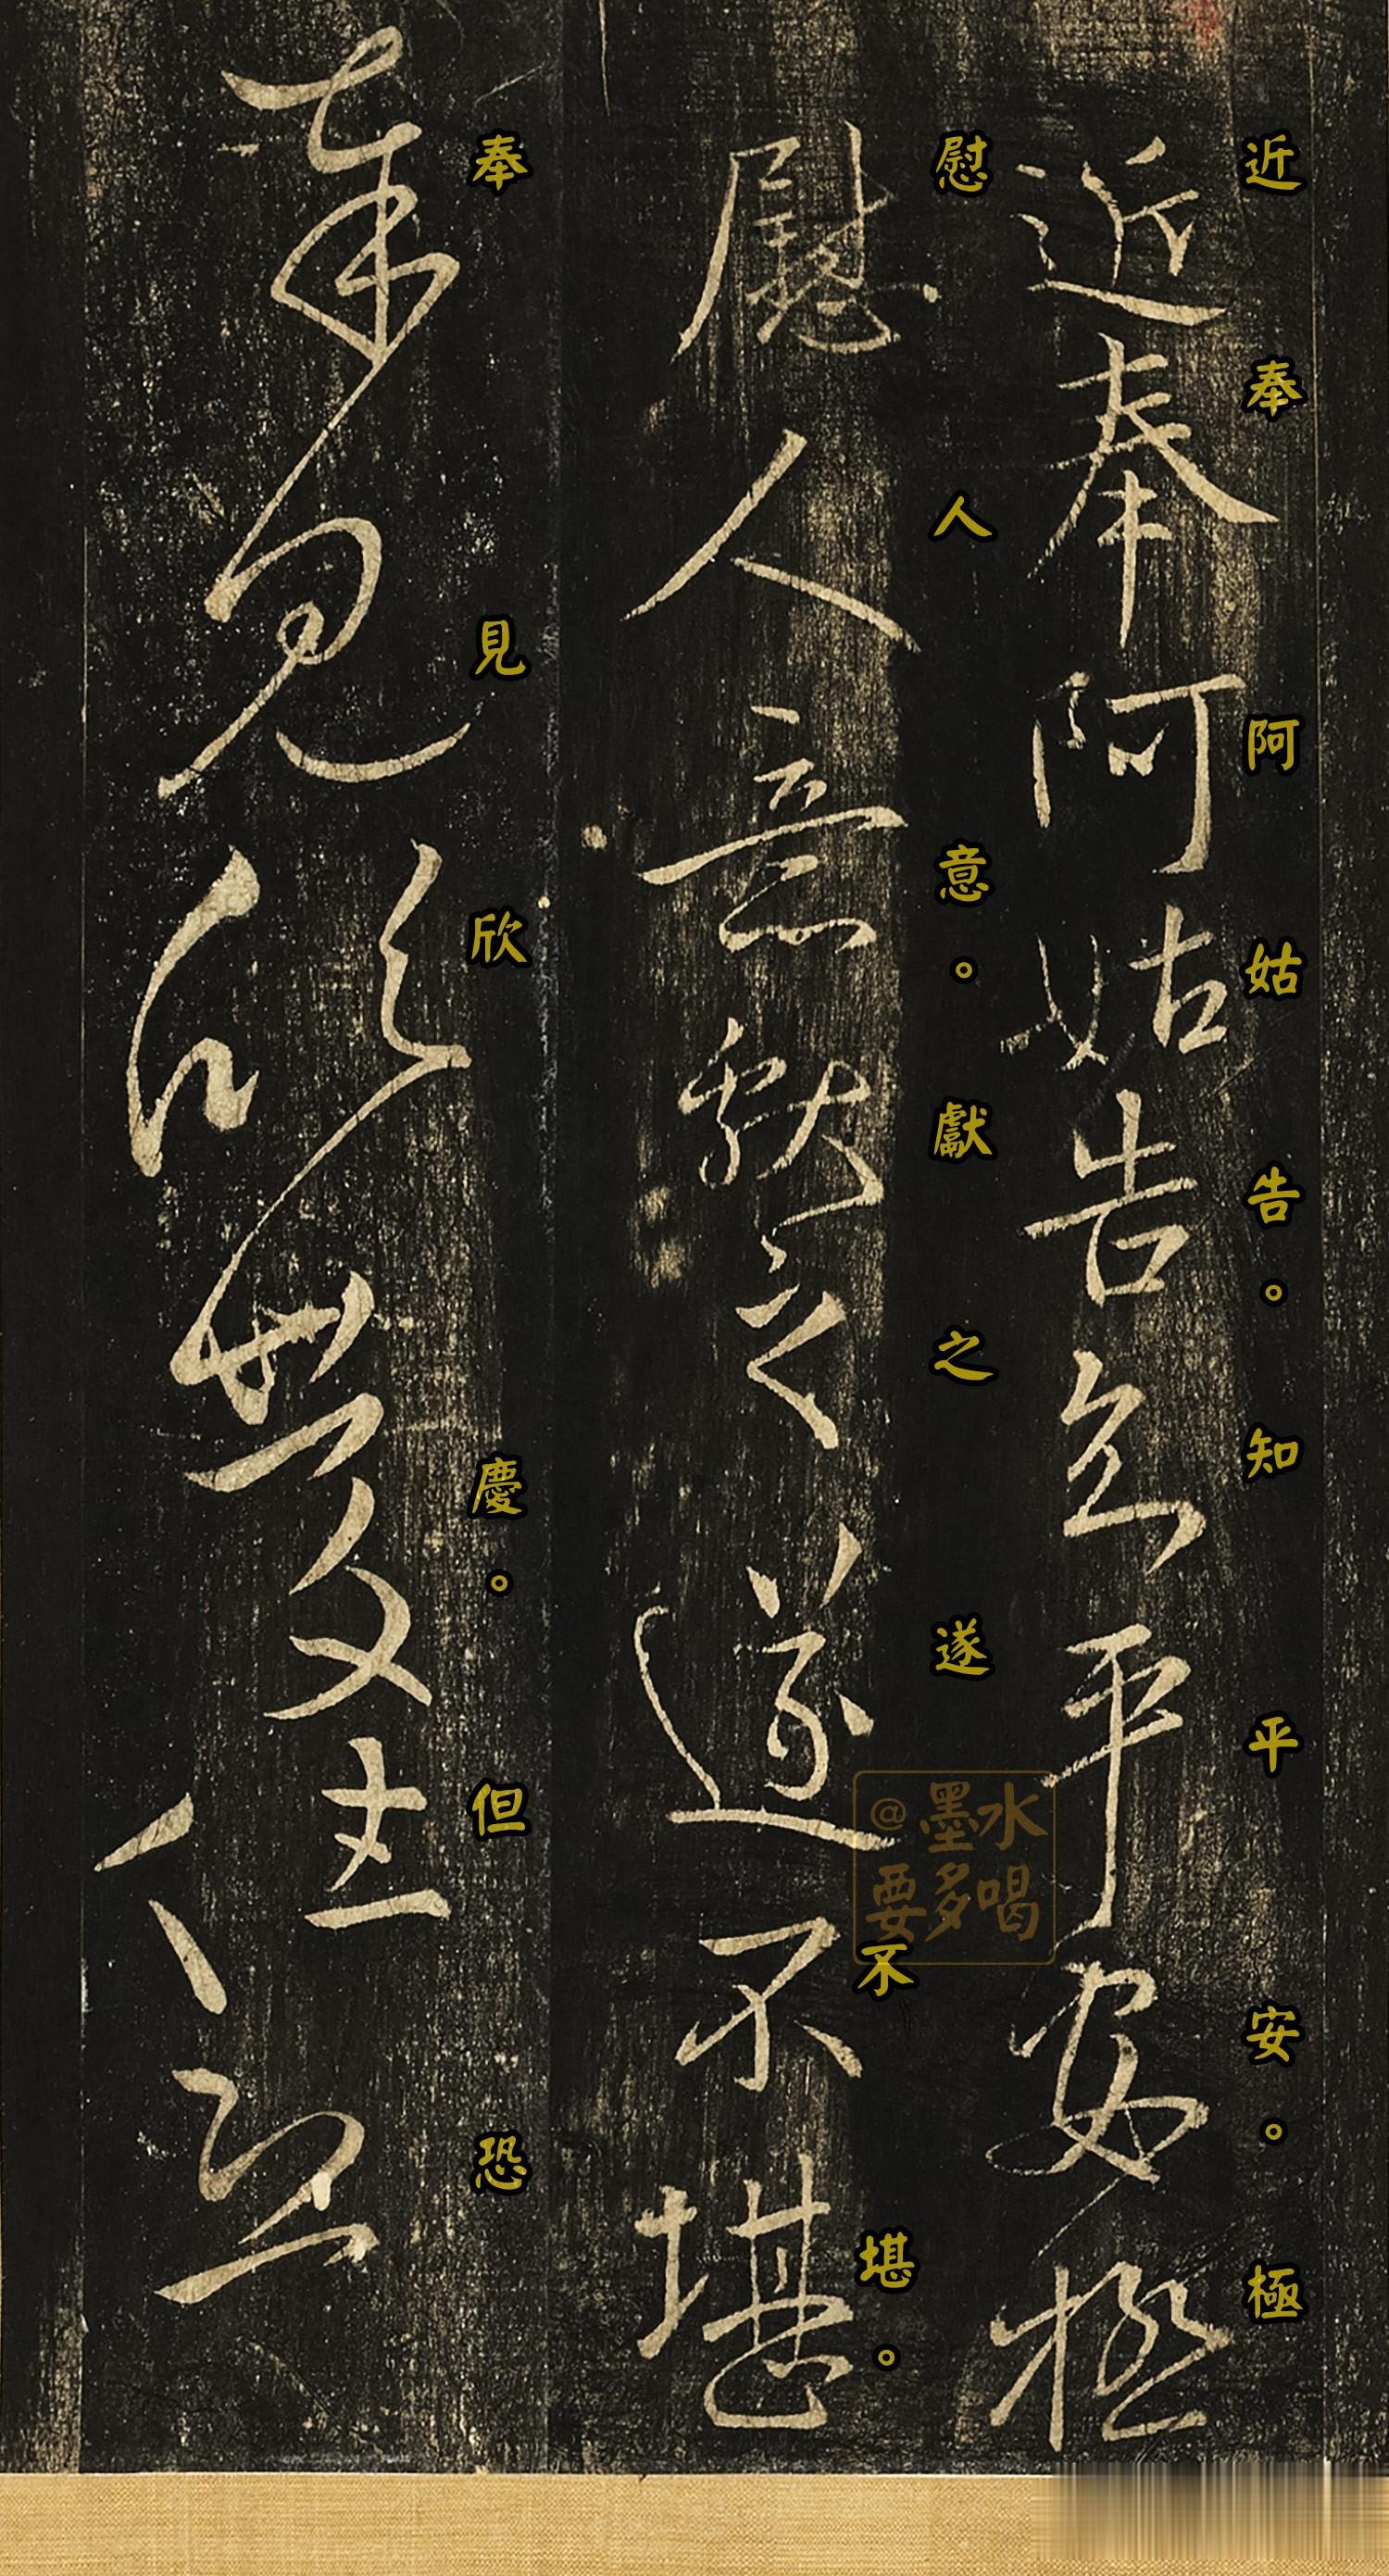 近奉阿姑告。知平安。極
近奉阿姑告知平安極
慰人意。獻之遂不堪。
慰人意獻之遂不堪
奉見欣慶。但恐
奉見欣慶但恐
@墨水
要多喝